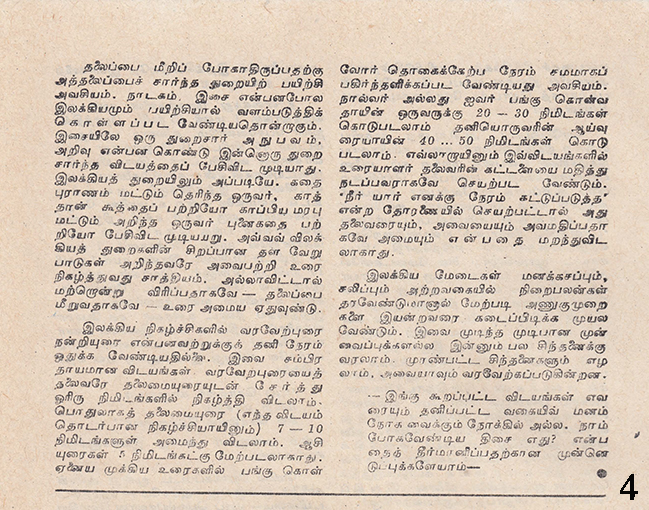 தலைப்பை மீறிப் போகாதிருப்பதற்கு
அத்தலைப்பைச் சார்ந்த துறையிற் பயிற்சி
அவசியம். நாடகம், இசை என்பனபோல
இலக்கியமும் பயிற்சியால் வளம்படுத்திக்
கொள்ளப்பட வேண்டியதொன்றாகும்.
இசையிலே ஒரு துறைசார் அநுபவம்,
அறிவு என்பன கொண்டு இன்னொரு துறை
சார்ந்த விடயத்தைப் பேசிவிட முடியாது.
இலக்கியத் துறையிலும் அப்படியே. கதை
புராணம் மட்டும் தெரிந்த ஒருவர், காத்
தான் கூத்தைப் பற்றியோ காப்பிய மரபு
மட்டும் அறிந்த ஒருவர் புனைகதை பற்
றியோ பேசிவிட முடியாது. அவ்வவ் விலக்
கியத் துறைகளின் சிறப்பான தள வேறு
பாடுகள் அறிந்தவரே அவைபற்றி உரை
நிகழ்த்துவது சாத்தியம். அல்லாவிட்டால்
மற்றொன்று விரிப்பதாகவே — தலைப்பை
மீறுவதாகவே — உரை அமைய ஏதுவுண்டு.
இலக்கிய நிகழ்ச்சிகளில் வரவேற்புரை
நன்றியுரை என்பனவற்றுக்குத் தனி நேரம்
ஒதுக்க வேண்டியதில்லை. இவை சம்பிர
தாயமான விடயங்கள். வரவேற்புரையைத்
தலைவரே தலைமையுரையுடன் சேர்த்து
ஓரிரு நிமிடங்களில் நிகழ்த்தி விடலாம்.
பொதுவாகத் தலைமையுரை (எந்த விடயம்
தொடர்பான நிகழ்ச்சியாயினும்) 7 — 10
நிமிடங்களுள் அமைந்து விடலாம். ஆசி
யுரைகள் 5 நிமிடங்கட்கு மேற்படலாகாது.
ஏனைய முக்கிய உரைகளில் பங்கு கொள்
வோர் தொகைக்கேற்ப நேரம் சமமாகப்
பகிர்ந்தளிக்கப்பட வேண்டியது அவசியம்.
நால்வர் அல்லது ஐவர் பங்கு கொள்வ
தாயின் ஒருவருக்கு 20 — 30 நிமிடங்கள்
கொடுபடலாம் தனியொருவரின் ஆய்வு
ரையாயின் 40 ... 50 நிமிடங்கள் கொடு
படலாம். எவ்வாறாயினும் இவ்விடயங்களில்
உரையாளர் தலைவரின் கட்டளையை மதித்து
நடப்பவராகவே செயற்பட வேண்டும்.
'நீர் யார் எனக்கு நேரம் கட்டுப்படுத்த'
என்ற தோரணையில் செயற்பட்டால் அது
தலைவரையும், அவையையும் அவமதிப்பதா
கவே அமையும் என்பதை மறந்துவிட
லாகாது.
இலக்கிய மேடைகள் மனக்கசப்பும்,
சலிப்பும் அற்றவகையில் நிறைபலன்கள்
தரவேண்டுமானால் மேற்படி அணுகுமுறை
களை இயன்றவரை கடைப்பிடிக்க முயல
வேண்டும். இவை முடிந்த முடிபான முன்
வைப்புக்களல்ல இன்னும் பல சிந்தனைக்கு
வரலாம். முரண்பட்ட சிந்தனைகளும் எழ
லாம், அவையாவும் வரவேற்கப்படுகின்றன.
— இங்கு கூறப்பட்ட விடயங்கள் எவ
ரையும் தனிப்பட்ட வகையில் மனம்
நோக வைக்கும் நோக்கில் அல்ல. நாம்
போகவேண்டிய திசை எது? என்ப
தைத் தீர்மானிப்பதற்கான முன்னெ
டுப்புக்களேயாம்—
4